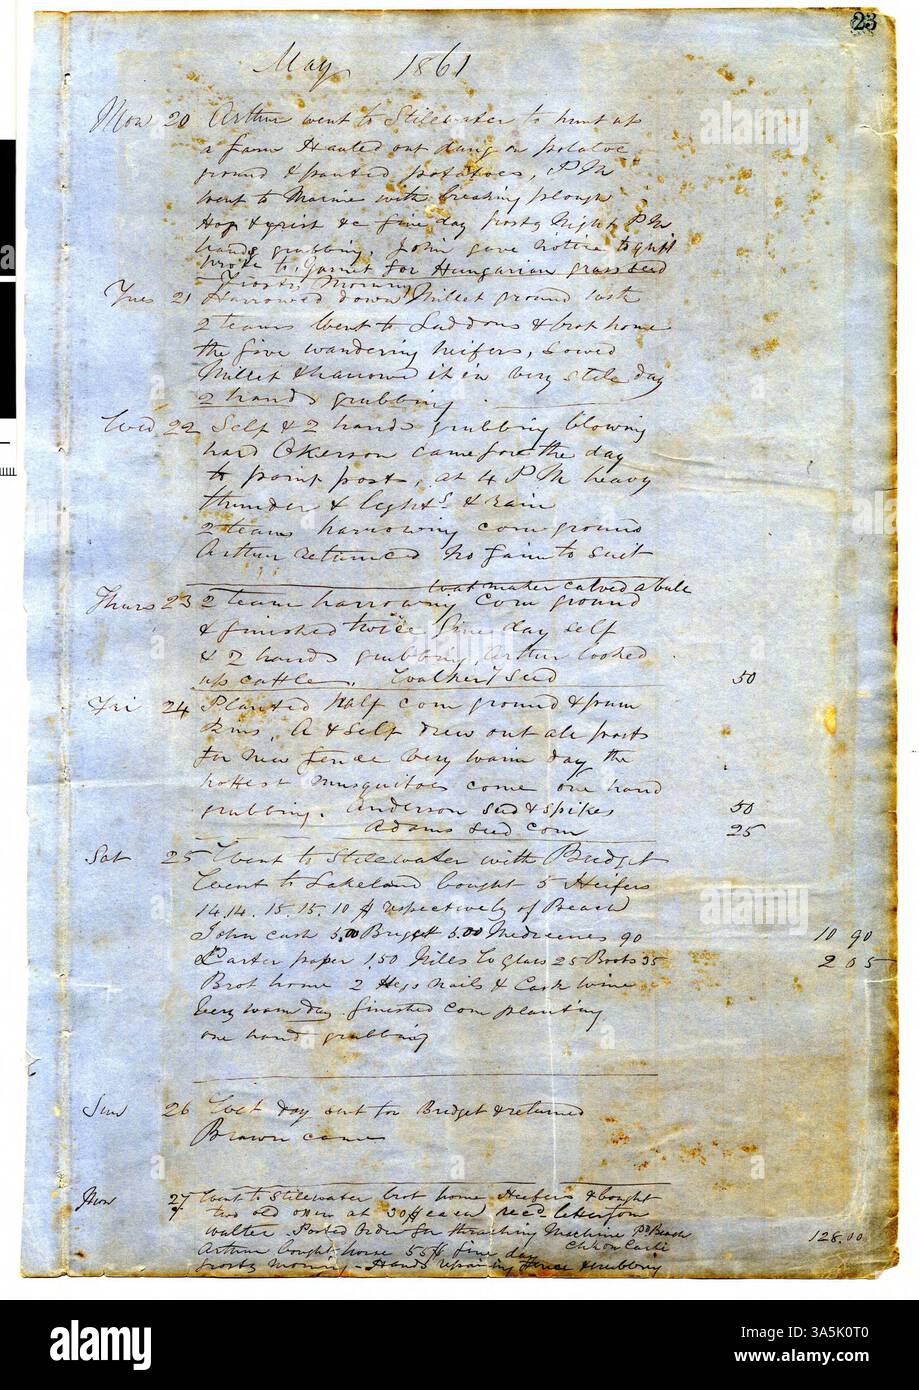 23
May 1861
Mon 20 Arthur went to Stillwater to hunt up
a farm Hauled out dung on potatoe
ground & planted potatoes, P M
went to Marine with breaking plough
Hog & grist &c fine day frosty Night P M
hands grubbing, John gave notice to quit
wrote to Garnet for Hungarian grass seed
Frosty Morning
Tues 21 Harrowed down Millet ground with
2 teams Went to Laddons & brot home
the five wandering heifers, sowed
Millet & harrowed it in very still day
2 hands grubbing.
Wed 22 Self & 2 hands grubbing blowing
hard Okerson came for the day
to paint post, at 4 P M heavy
thunder & lights & rain
2 teams harrowing corn ground
Arthur returned No farm to suit
calved a bull
Thurs 23 2 team harrowing corn ground
& finished twice fine day self
& 2 hands grubbing, Arthur looked
up cattle, Walker / seed 50
Fri 24 Planted half corn ground &
A & Self drew out all posts
for new fence very warm day the
hottest musquitoes come one hand
grubbing. Anderson seed & spikes 50
Adams seed corn 25
Sat 25 Went to Stillwater with Bridget
Went to Lakeland bought 5 Heifers
14. 14. 15. 15. 10 $ respectively of Beach
John cash 5.00 Bridget 5.00 Medecines 90 10 90
Carter paper 1.50 Glass 25 Boots 35 2 05
Brot home 2 Hogs nails & Cask wine
Very warm day finished corn planting
one hand grubbing
Sun 26 Wet day sent for Bridget & returned
Brown came
Mon 27 Went to Stillwater brot home Heifers & bought
two old oxen at 30 $ each recd
Walter Posted Order for thrashing Machine pd Beach 128.00
Arthur bought horse 55 $ fine day
frosty morning - Hands repairing fence & grubbing
alamy
a
alamy
Image ID: 3A5K0T0
www.alamy.com